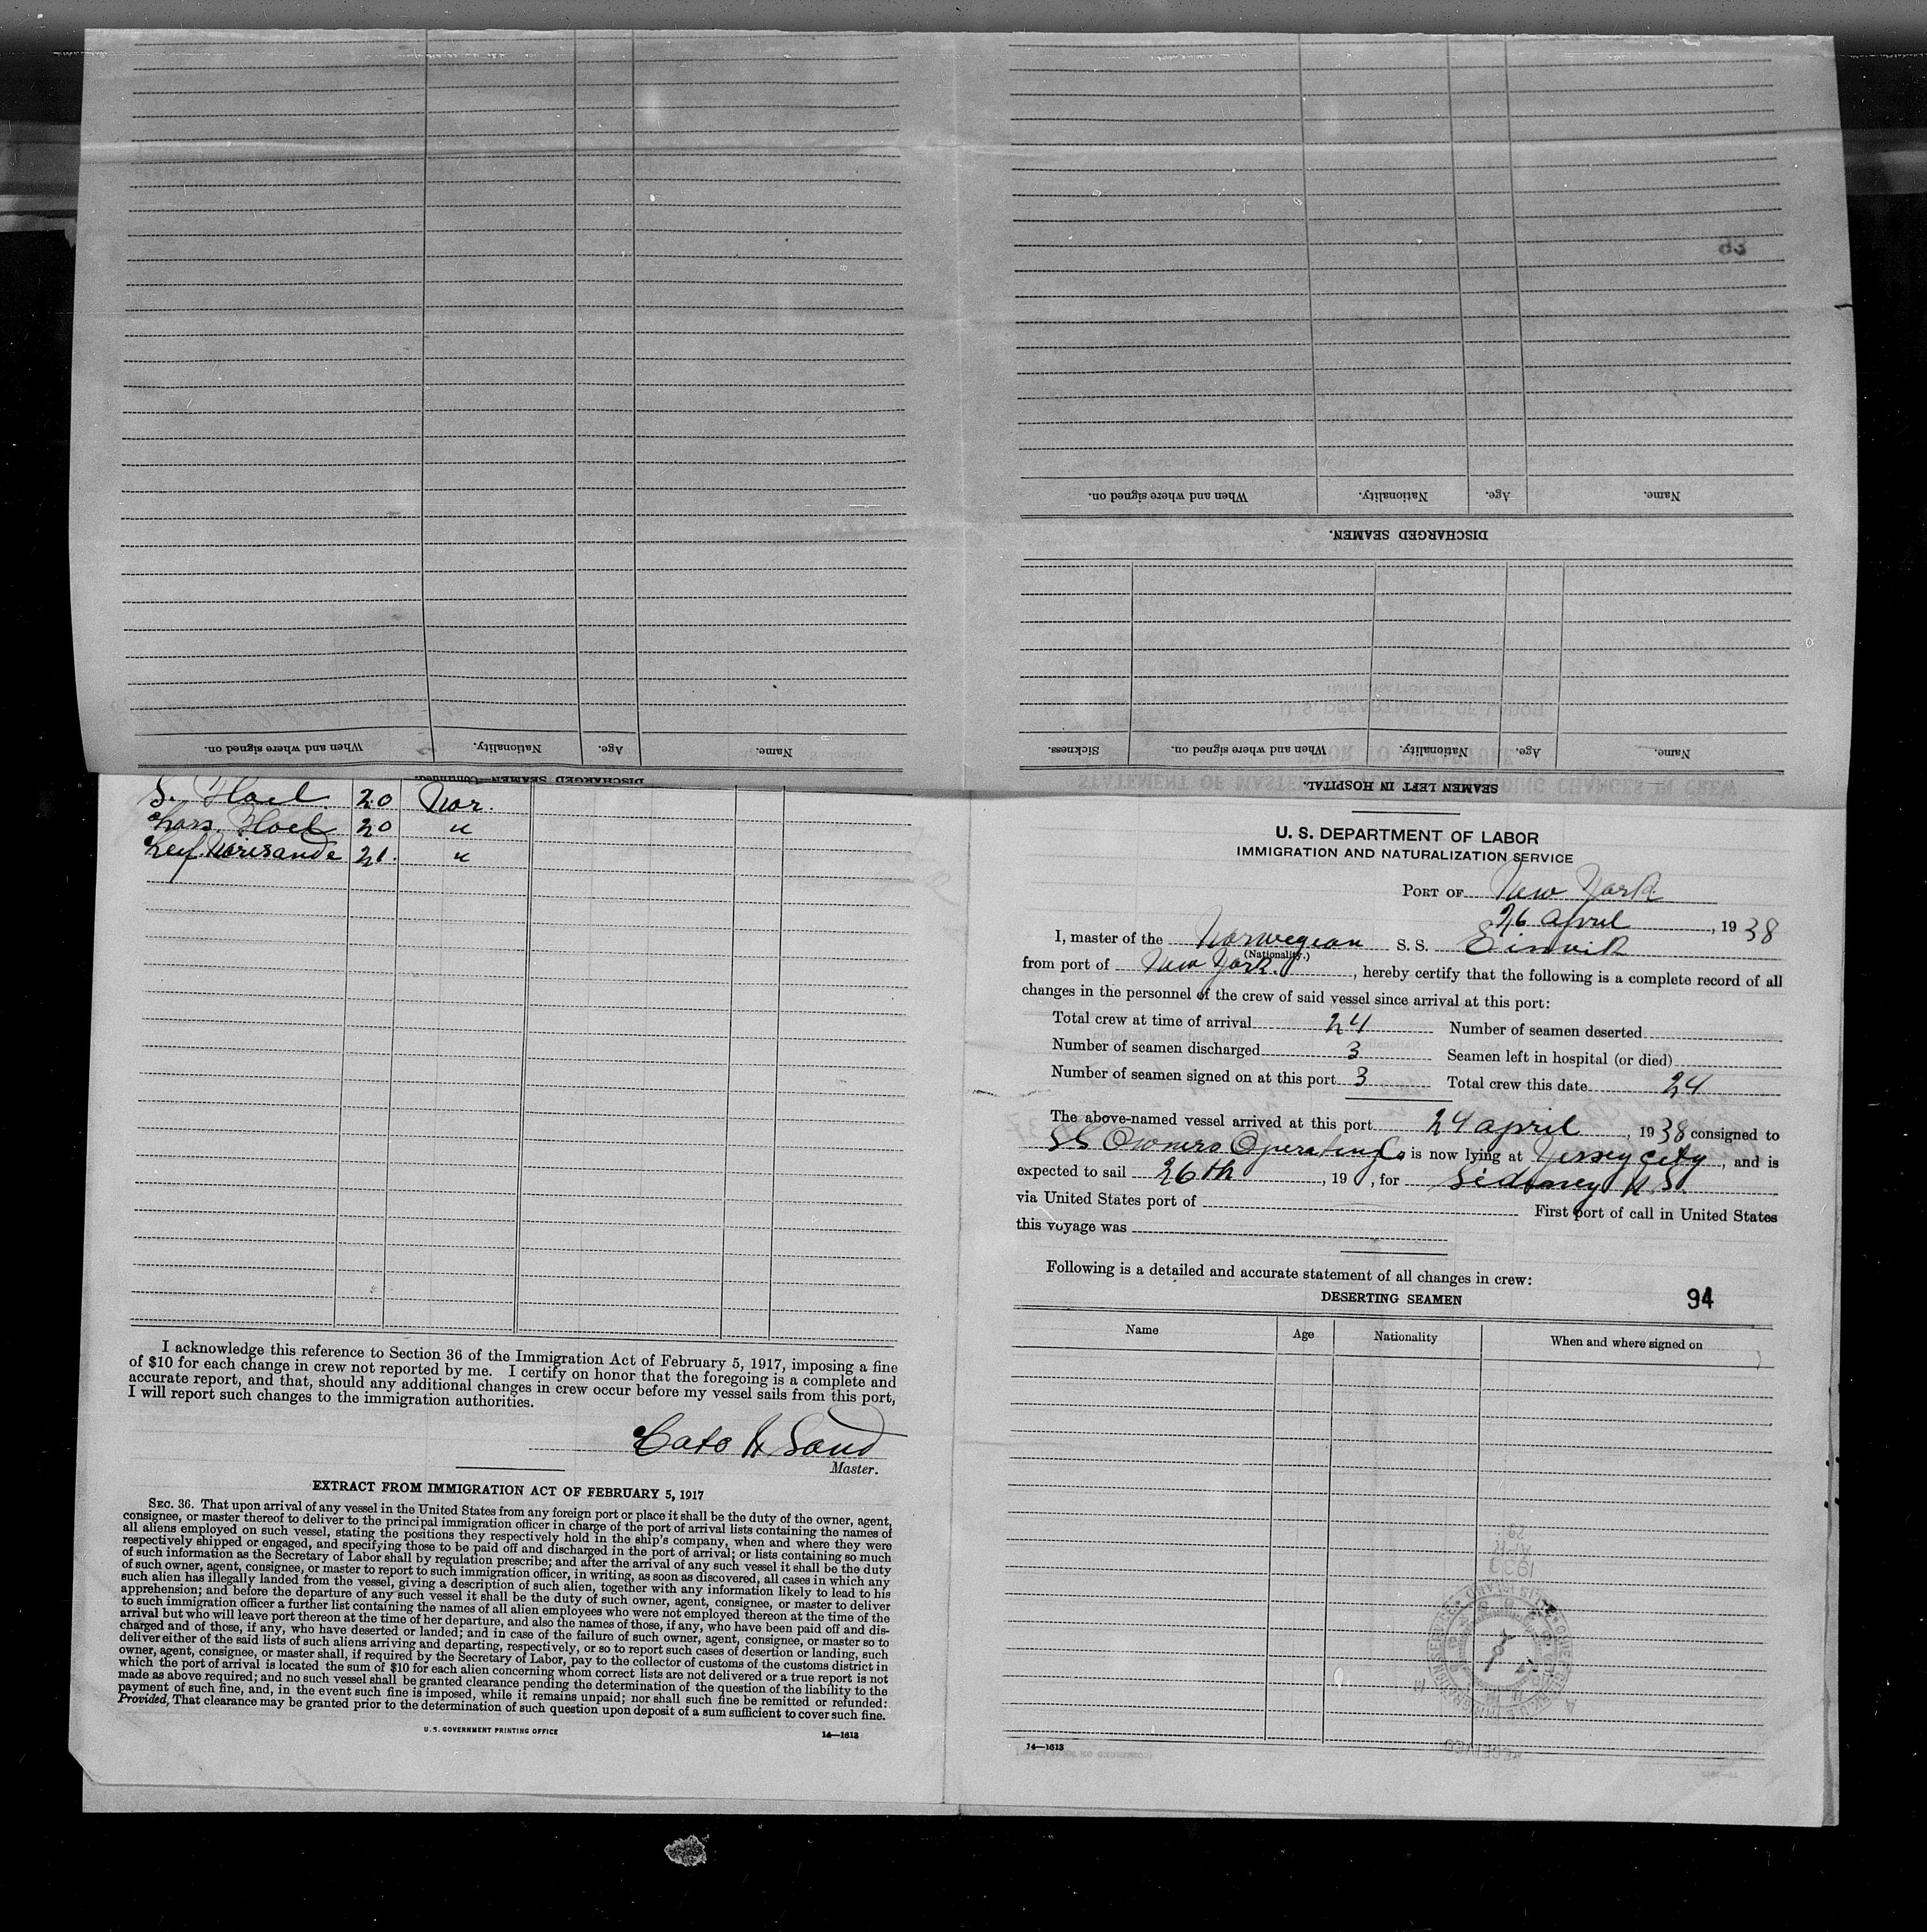 When and where signed on.
Nationality.
Age.
Name.
DISCHARGED SEAMEN—Continued.
S. Hoel. 20 Nor.
Lars Hoel 20 "
Leif 21. "
I acknowledge this reference to Section 36 of the Immigration Act of February 5, 1917, imposing a fine
of $10 for each change in crew not reported by me. I certify on honor that the foregoing is a complete and
accurate report, and that, should any additional changes in crew occur before my vessel sails from this port,
I will report such changes to the immigration authorities.
Cato H Sand
Master.
EXTRACT FROM IMMIGRATION ACT OF FEBRUARY 5, 1917
SEC. 36. That upon arrival of any vessel in the United States from any foreign port or place it shall be the duty of the owner, agent,
consignee, or master thereof to deliver to the principal immigration officer in charge of the port of arrival lists containing the names of
all aliens employed on such vessel, stating the positions they respectively hold in the ship's company, when and where they were
respectively shipped or engaged, and specifying those to be paid off and discharged in the port of arrival; or lists containing so much
of such information as the Secretary of Labor shall by regulation prescribe; and after the arrival of any such vessel it shall be the duty
of such owner, agent, consignee, or master to report to such immigration officer, in writing, as soon as discovered, all cases in which any
such alien has illegally landed from the vessel, giving a description of such alien, together with any information likely to lead to his
apprehension; and before the departure of any such vessel it shall be the duty of such owner, agent, consignee, or master to deliver
to such immigration officer a further list containing the names of all alien employees who were not employed thereon at the time of the
arrival but who will leave port thereon at the time of her departure, and also the names of those, if any, who have been paid off and dis-
charged and of those, if any, who have deserted or landed; and in case of the failure of such owner, agent, consignee, or master so to
deliver either of the said lists of such aliens arriving and departing, respectively, or so to report such cases of desertion or landing, such
owner, agent, consignee, or master shall, if required by the Secretary of Labor, pay to the collector of customs of the customs district in
which the port of arrival is located the sum of $10 for each alien concerning whom correct lists are not delivered or a true report is not
made as above required; and no such vessel shall be granted clearance pending the determination of the question of the liability to the
payment of such fine, and, in the event such fine is imposed, while it remains unpaid; nor shall such fine be remitted or refunded:
Provided, That clearance may be granted prior to the determination of such question upon deposit of a sum sufficient to cover such fine.
U. S. GOVERNMENT PRINTING OFFICE 14—1613
83
When and where signed on. Nationality. Age. Name.
DISCHARGED SEAMEN.
Sickness. When and where signed on. Nationality. Age. Name.
SEAMEN LEFT IN HOSPITAL.
U. S. DEPARTMENT OF LABOR
IMMIGRATION AND NATURALIZATION SERVICE
PORT OF New York.
26 april, 1938
I, master of the Norwegian S. S. Einvik
(Nationality.)
from port of New York., hereby certify that the following is a complete record of all
changes in the personnel of the crew of said vessel since arrival at this port:
Total crew at time of arrival 24 Number of seamen deserted
Number of seamen discharged 3 Seamen left in hospital (or died)
Number of seamen signed on at this port 3 Total crew this date 24
The above-named vessel arrived at this port 24 april, 1938 consigned to
SS Owners Operating Co is now lying at Jersey City, and is
expected to sail 26th, 19 , for Sedney N.S.
via United States port of First port of call in United States
this voyage was
Following is a detailed and accurate statement of all changes in crew:
DESERTING SEAMEN 94
Name Age Nationality When and where signed on
14—1613